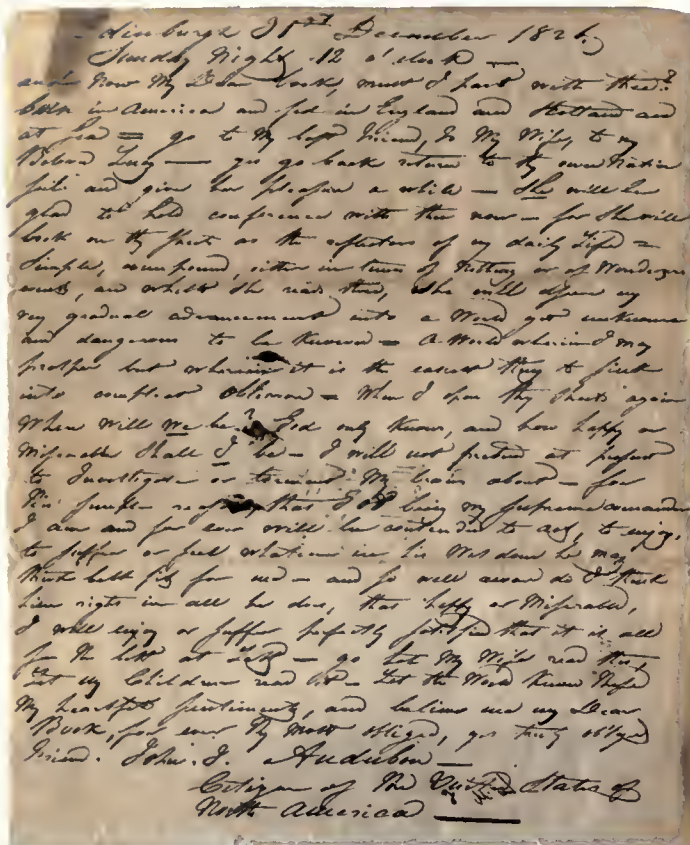 Edinburgh 31st December 1826,
Sunday Night 12 o'clock —
and now My Dear book, must I part with thee?
born in America and fed in England and Scotland and
at Sea — go to My best Friend, to My Wife, to my
Beloved Lucy — yes go back return to thy own Native
soil and give her pleasure a while — She will be
glad to hold conference with thee now — for she will
look on thy sheets as the reflectors of my daily Life —
Simple, either in times of Nothing or of Wonderous
events, and whilst she reads thee, she will my
very gradual advancement into a World yet unknown
and dangerous to be Known — A World wherein I may
prosper but wherein it is the easiest thing to sink
into compleat Oblivion — When I open thy sheets again
Where will we be? God only Knows, and how happy or
Miserable shall I be — I will not pretend at present
to Investigate or torment My brain about — for
this simple reason that God being my supreme commander
I am and for ever will be contended to act, to enjoy,
to suffer or feel whatever in his Wisdom he may
think best fit for me — and so well aware do I think
him right in all he does, that happy or Miserable,
I will enjoy or suffer perfectly satisfied that it is all
for the best at Last — go let My Wife read this,
let my Children read it — Let the World Know these
My heartfelt sentiments, and believe me my Dear
Book, for ever thy most obliged, yes truly obliged
Friend. John. J. Audubon —
Citizen of the United States of
North America —